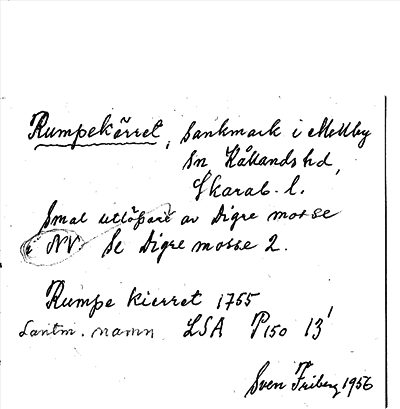 Rumpekärret, sankmark i Mellby
sn Kållands hd,
Skarab. l.
Smal utlöpare av Digre mosse
i NV. Se Digre mosse 2.
Rumpe kierret 1765
Lantm. namn LSA P150 13'
Sven Friberg 1956